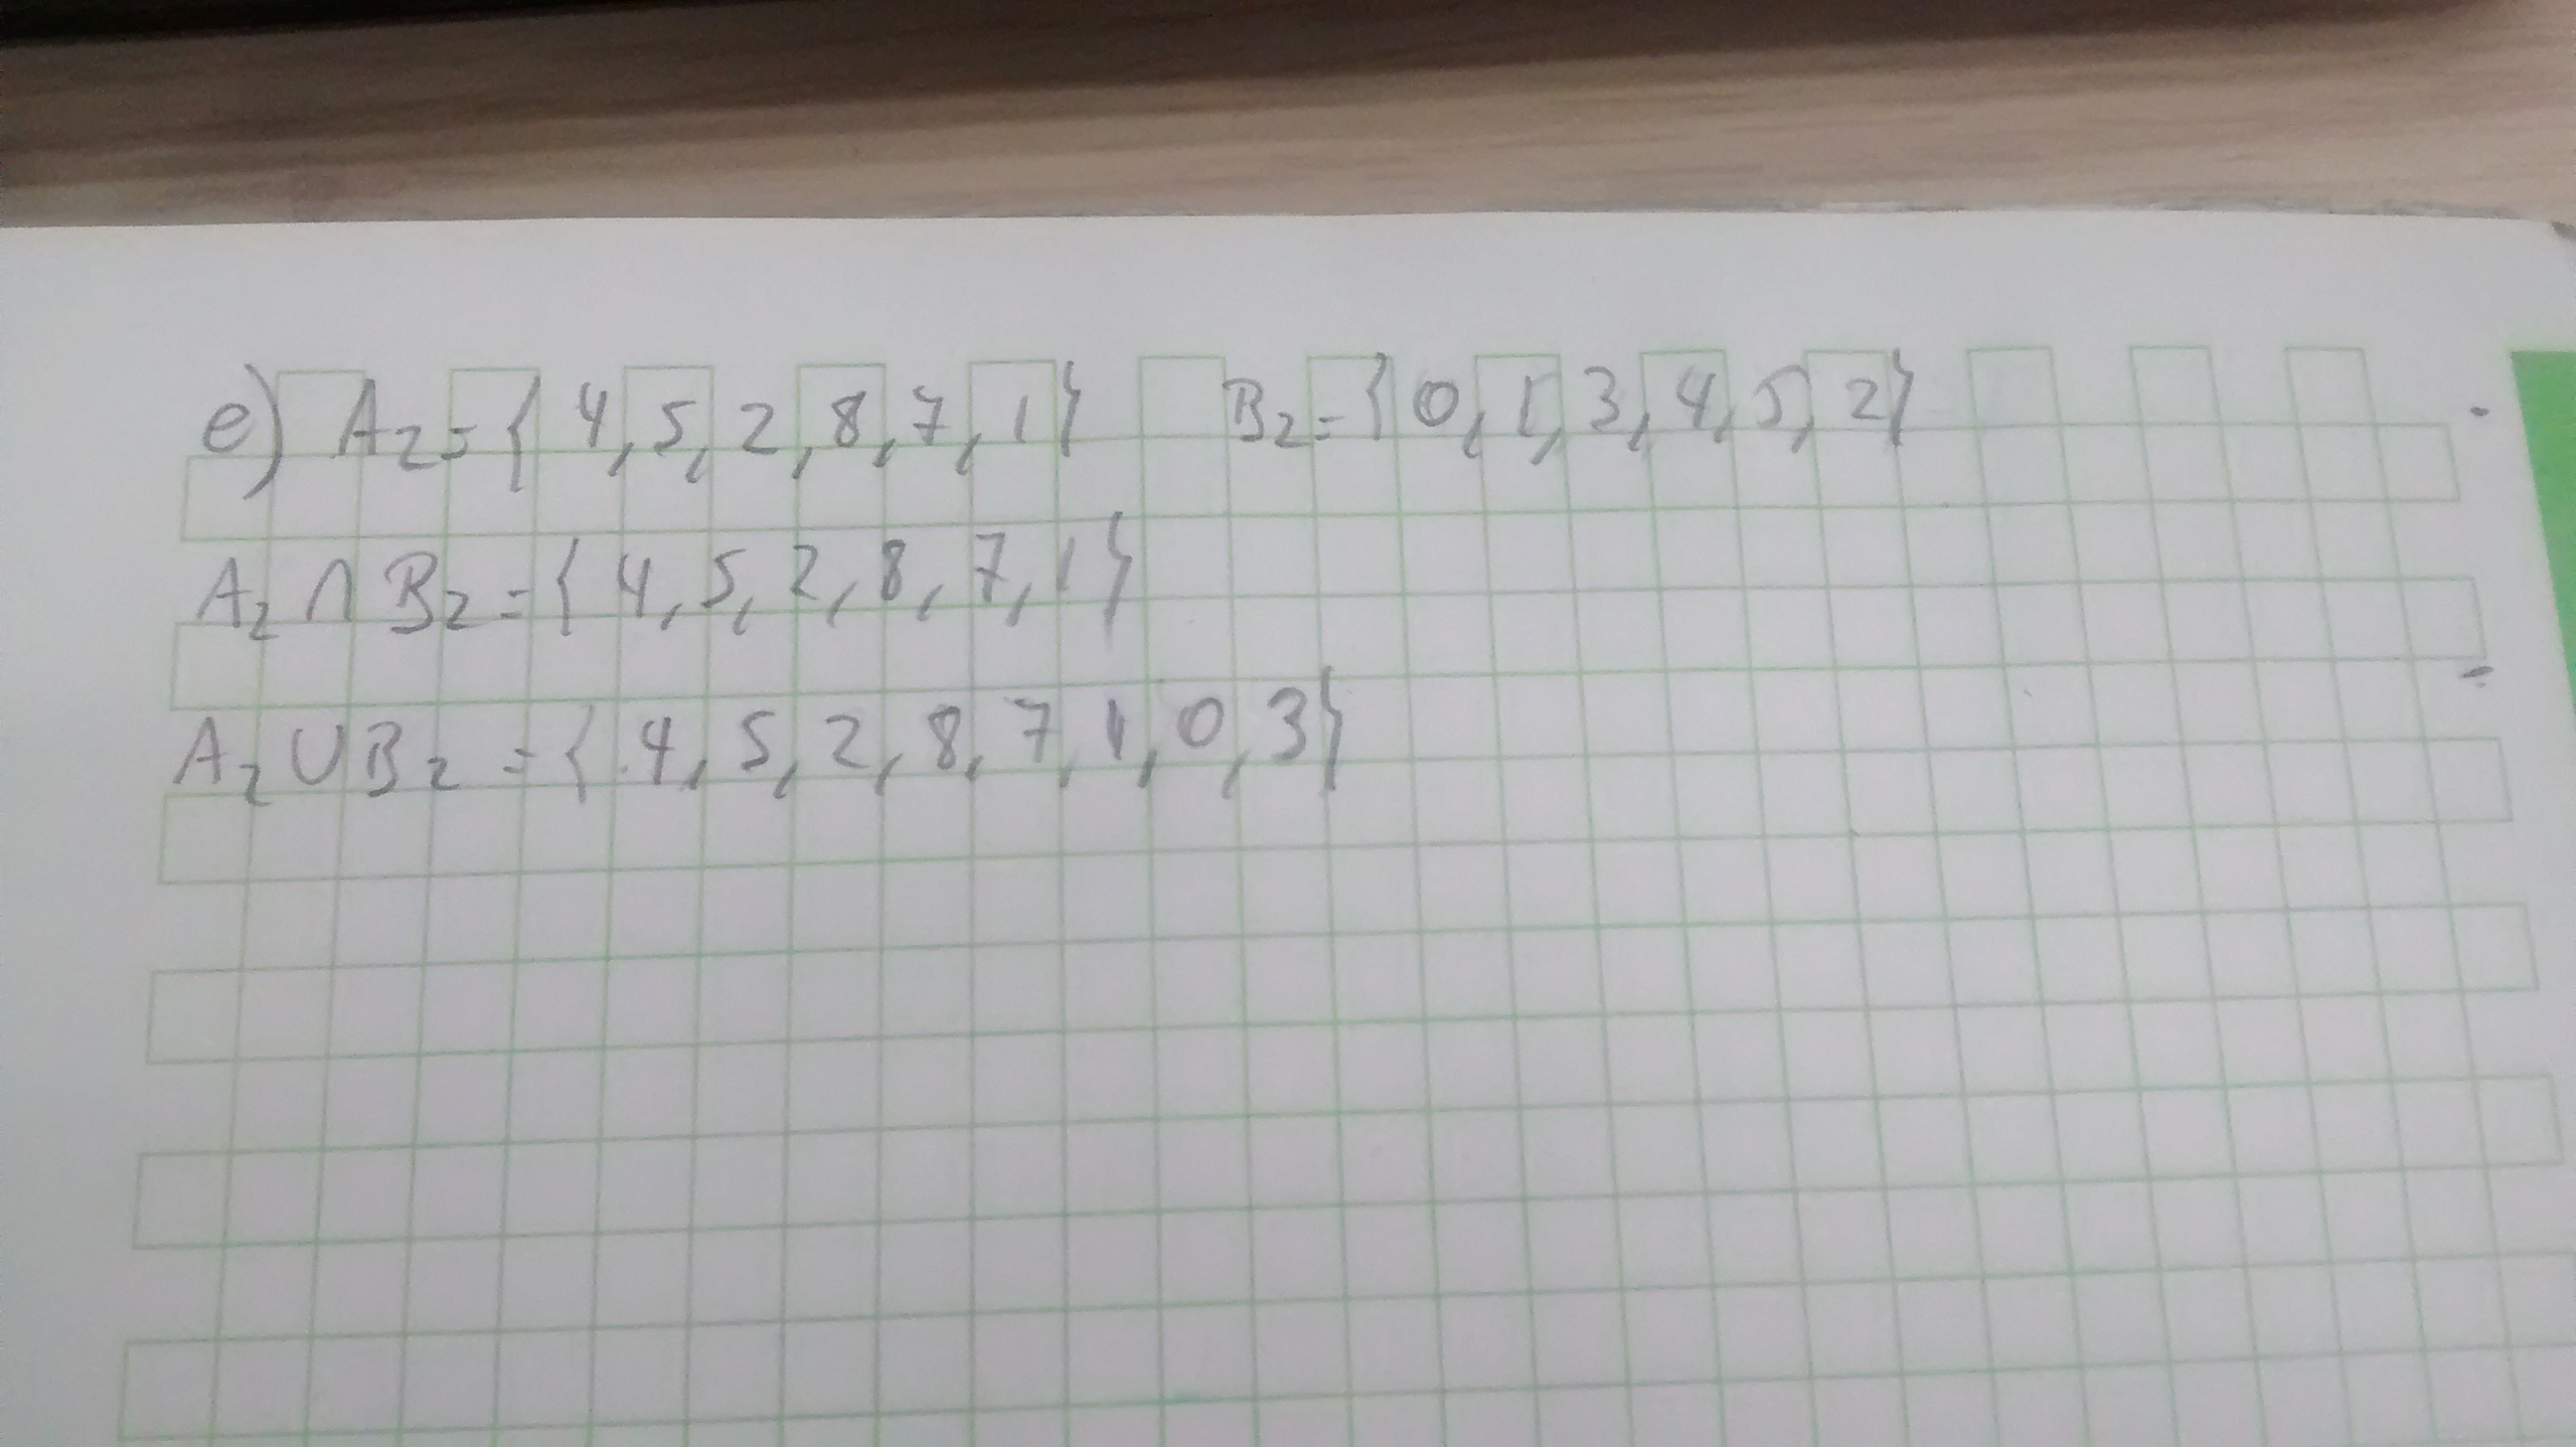 e) A₂ = { 4, 5, 2, 8, 7, 1 } B₂ = { 0, 1, 3, 4, 5, 2 }
A₂ ∩ B₂ = { 4, 5, 2, 8, 7, 1 }
A₂ ∪ B₂ = { 4, 5, 2, 8, 7, 1, 0, 3 }